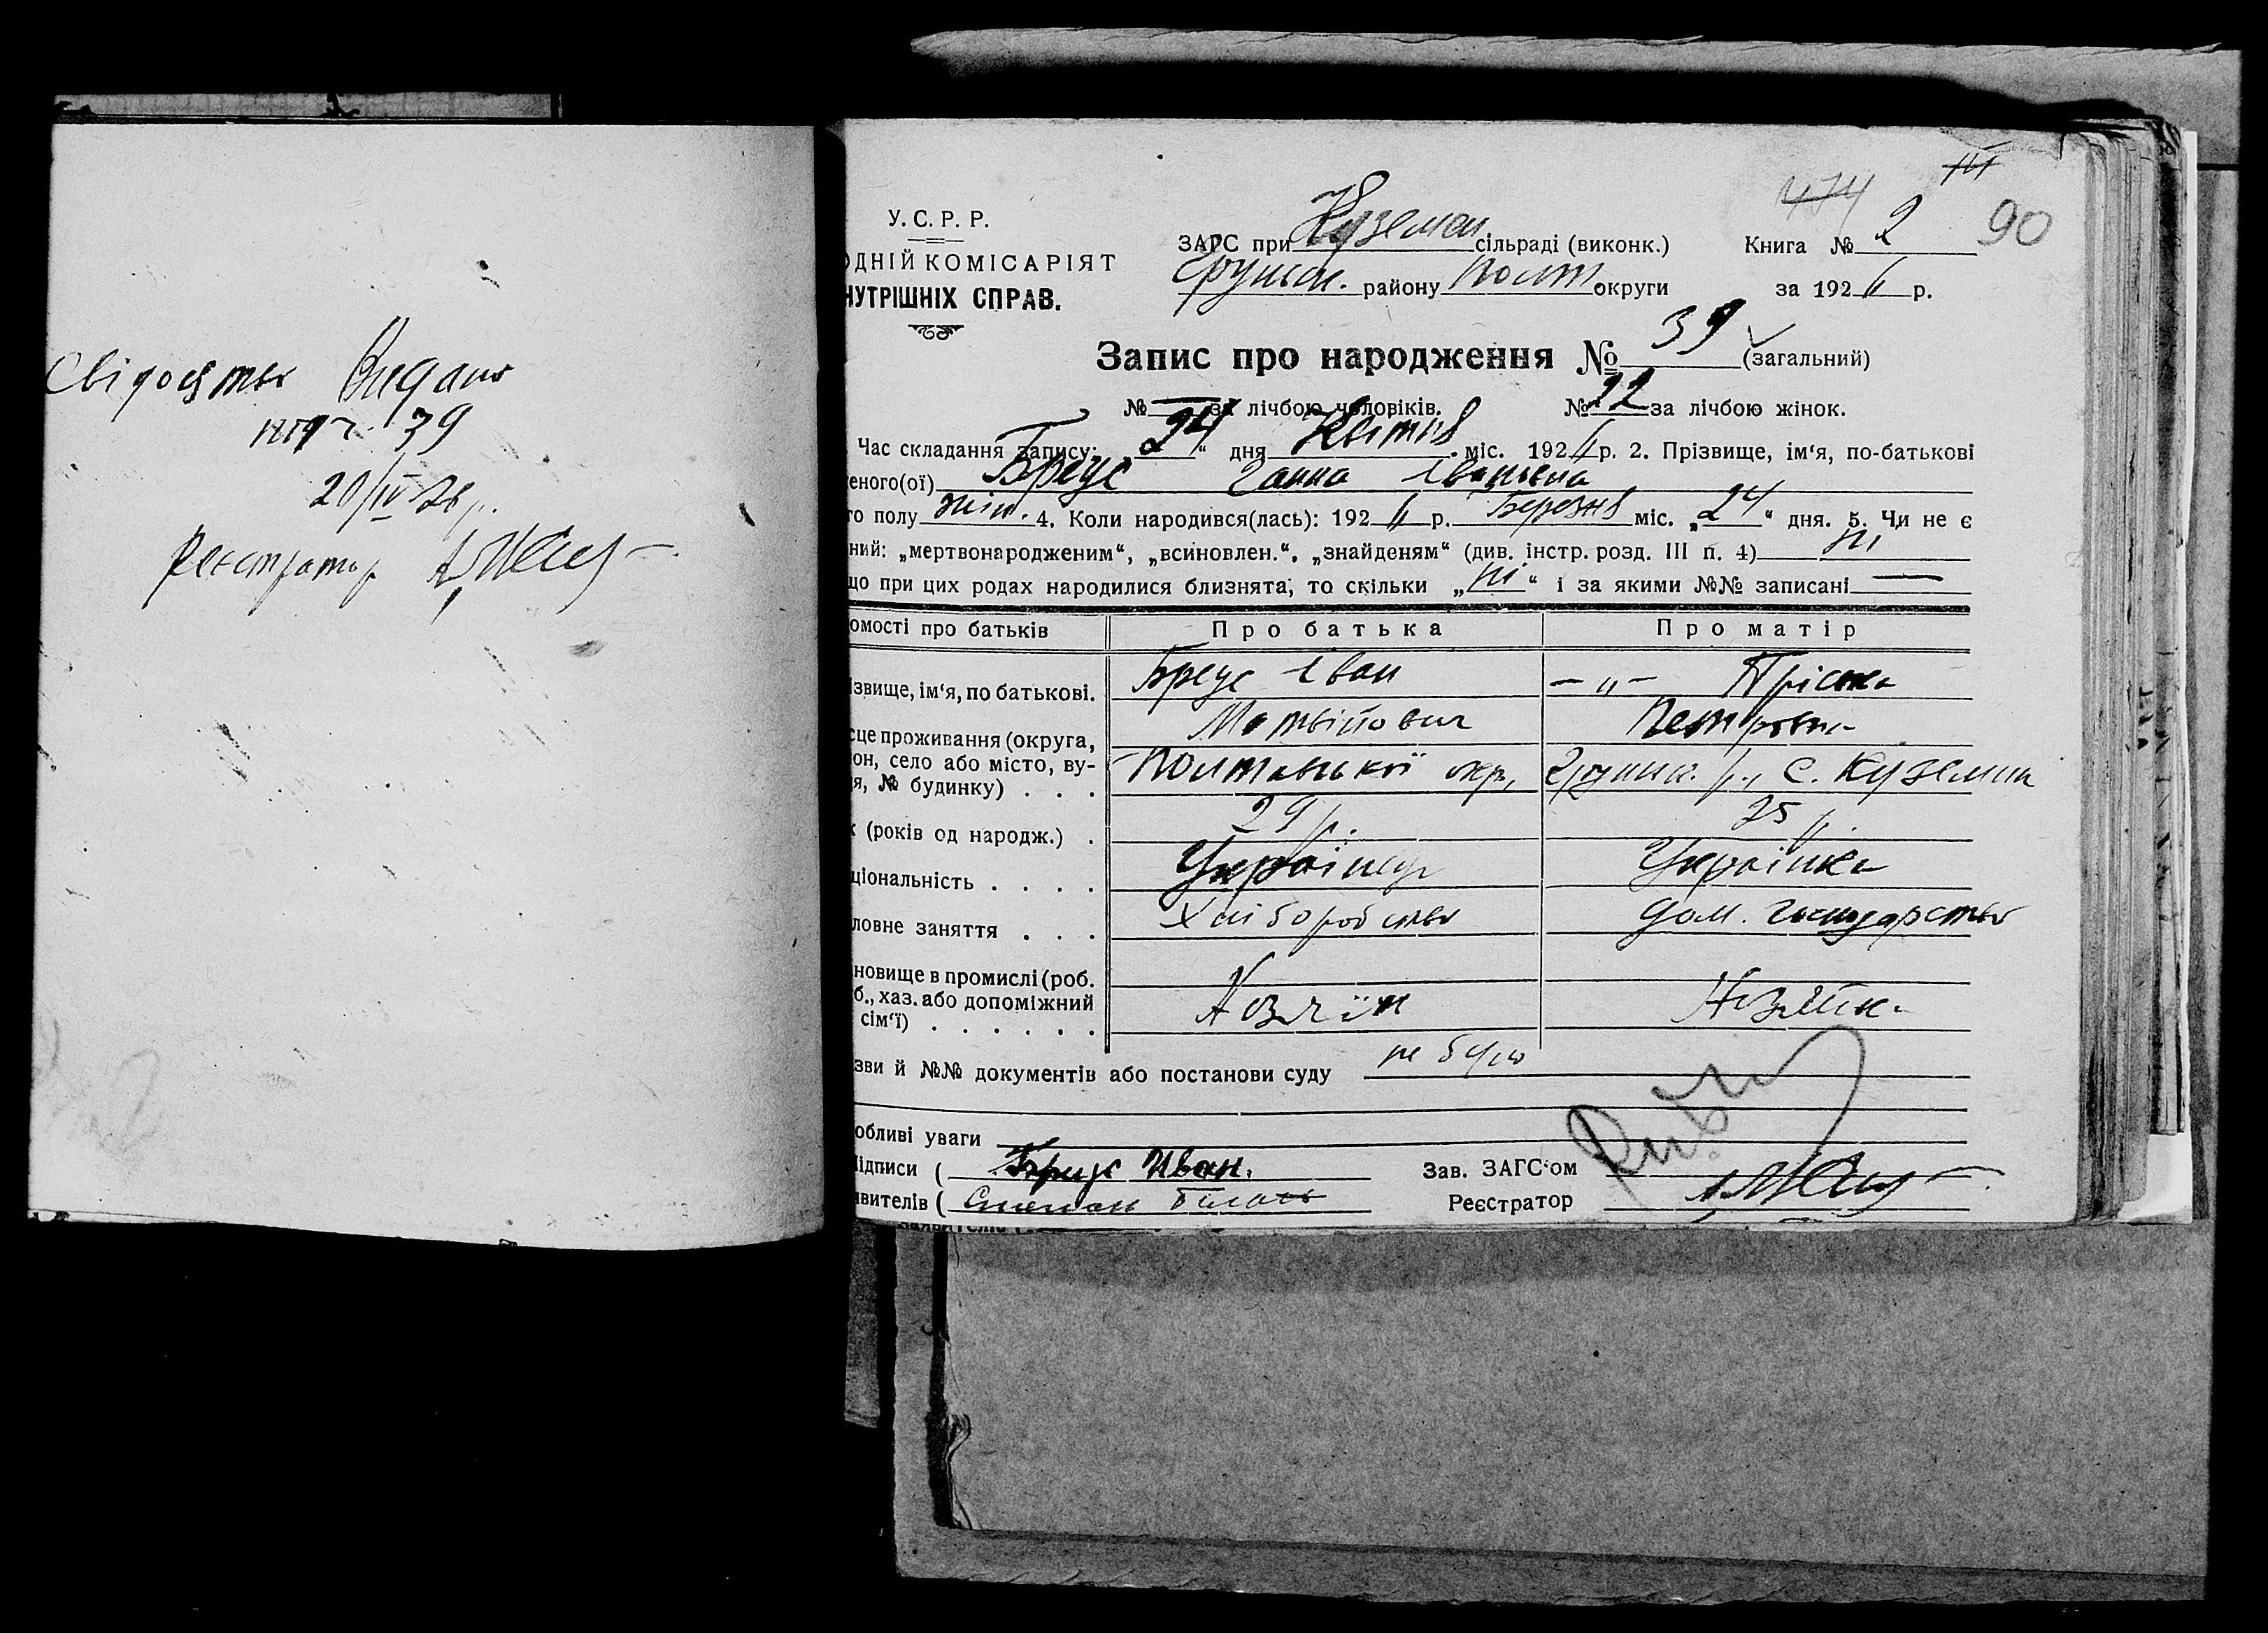 Свідоцтво Видано
39
20/IV 26 р.
Реєстратор
474
90
У.С.Р.Р.
ОДНІЙ КОМІСАРІЯТ
НУТРІШНІХ СПРАВ.
ЗАГС при Куземен сільраді (виконк.)
Книга № 2
Грунськ. району Полт. округи
за 1926 р.
Запис про народження № 39 (загальний)
№ — за лічбою чоловіків. № 22 за лічбою жінок.
Час складання запису: „24“ дня Квітня міс. 1926 р. 2. Прізвище, ім‘я, по-батькові
еного(ої) Бреус Ганна Іванівна
го полу жін. 4. Коли народився(лась): 1926 р. Березня міс. „24“ дня. 5. Чи не є
ний: „мертвонародженим“, „всиновлен.“, „знайденям“ (див. інстр. розд. III п. 4) ні
що при цих родах народилися близнята, то скільки „ні“ і за якими №№ записані —
омості про батьків Про батька Про матір
ізвище, ім‘я, по батькові. Бреус Іван — „ — Пріська
Матвійович Петровна
сце проживання (округа,
он, село або місто, ву-
я, № будинку) . . . Полтавської окр., Грунськ. р., с. Куземин
к (років од народж.) . 29 р. 25 р.
ціональність . . . . Українець Українка
ловне заняття . . . Хліборобство дом. господарство
новище в промислі (роб.
б., хаз. або допоміжний
сім‘ї) . . . . . . Хозяїн Хозяйка
зви й №№ документів або постанови суду не було
обливі уваги
ідписи ( Бреус Иван.
Зав. ЗАГС‘ом
явителів ( Степан Билась
Реєстратор